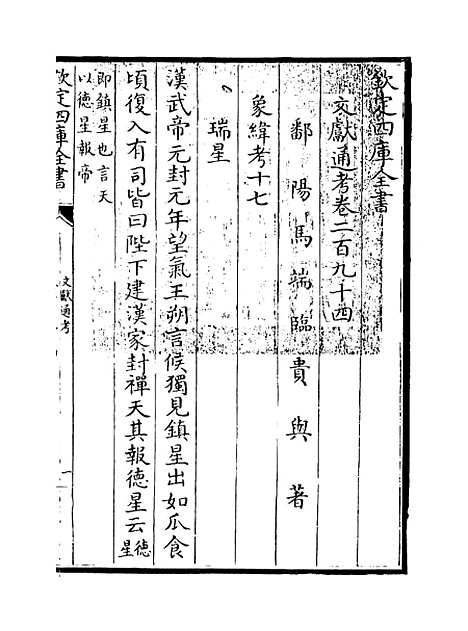 欽定四庫全書
文獻通考卷二百九十四
鄱陽馬端臨貴與著
象緯考十七
瑞星
漢武帝元封元年望氣王朔言候獨見鎮星出如瓜食
頃復入有司皆曰陛下建漢家封禪天其報德星云德星
即鎮星也言天
以德星報帝
欽定四庫全書
文獻通考
一